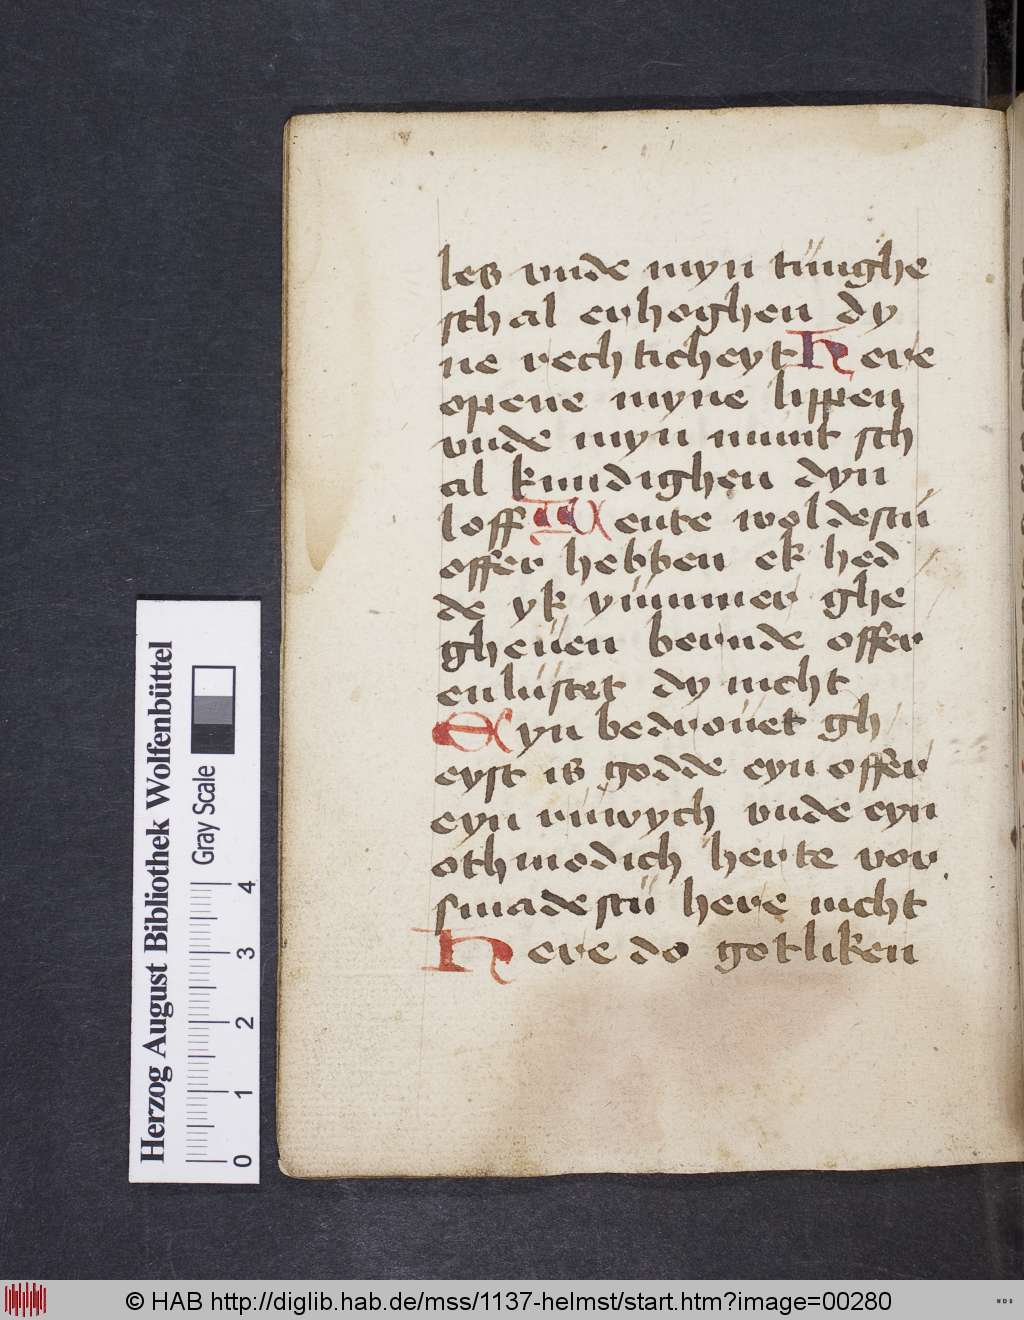 les vnde myn tunghe
sch al erhoghen dy
ne rechticheyt Here
opene myne lippen
vnde myn munt sch
al kundighen dyn
loff Wente woldestu
offer hebben ek hed
de yk yummer ghe
gheuen bernde offer
enlustet dy nicht
Eyn bedrouet gh
eyst is godde eyn offer
eyn ruwych vnde eyn
othmodich herte vor
smadestu here nicht
Here do gotliken
Herzog August Bibliothek Wolfenbüttel
Gray Scale
0 1 2 3 4
© HAB http://diglib.hab.de/mss/1137-helmst/start.htm?image=00280